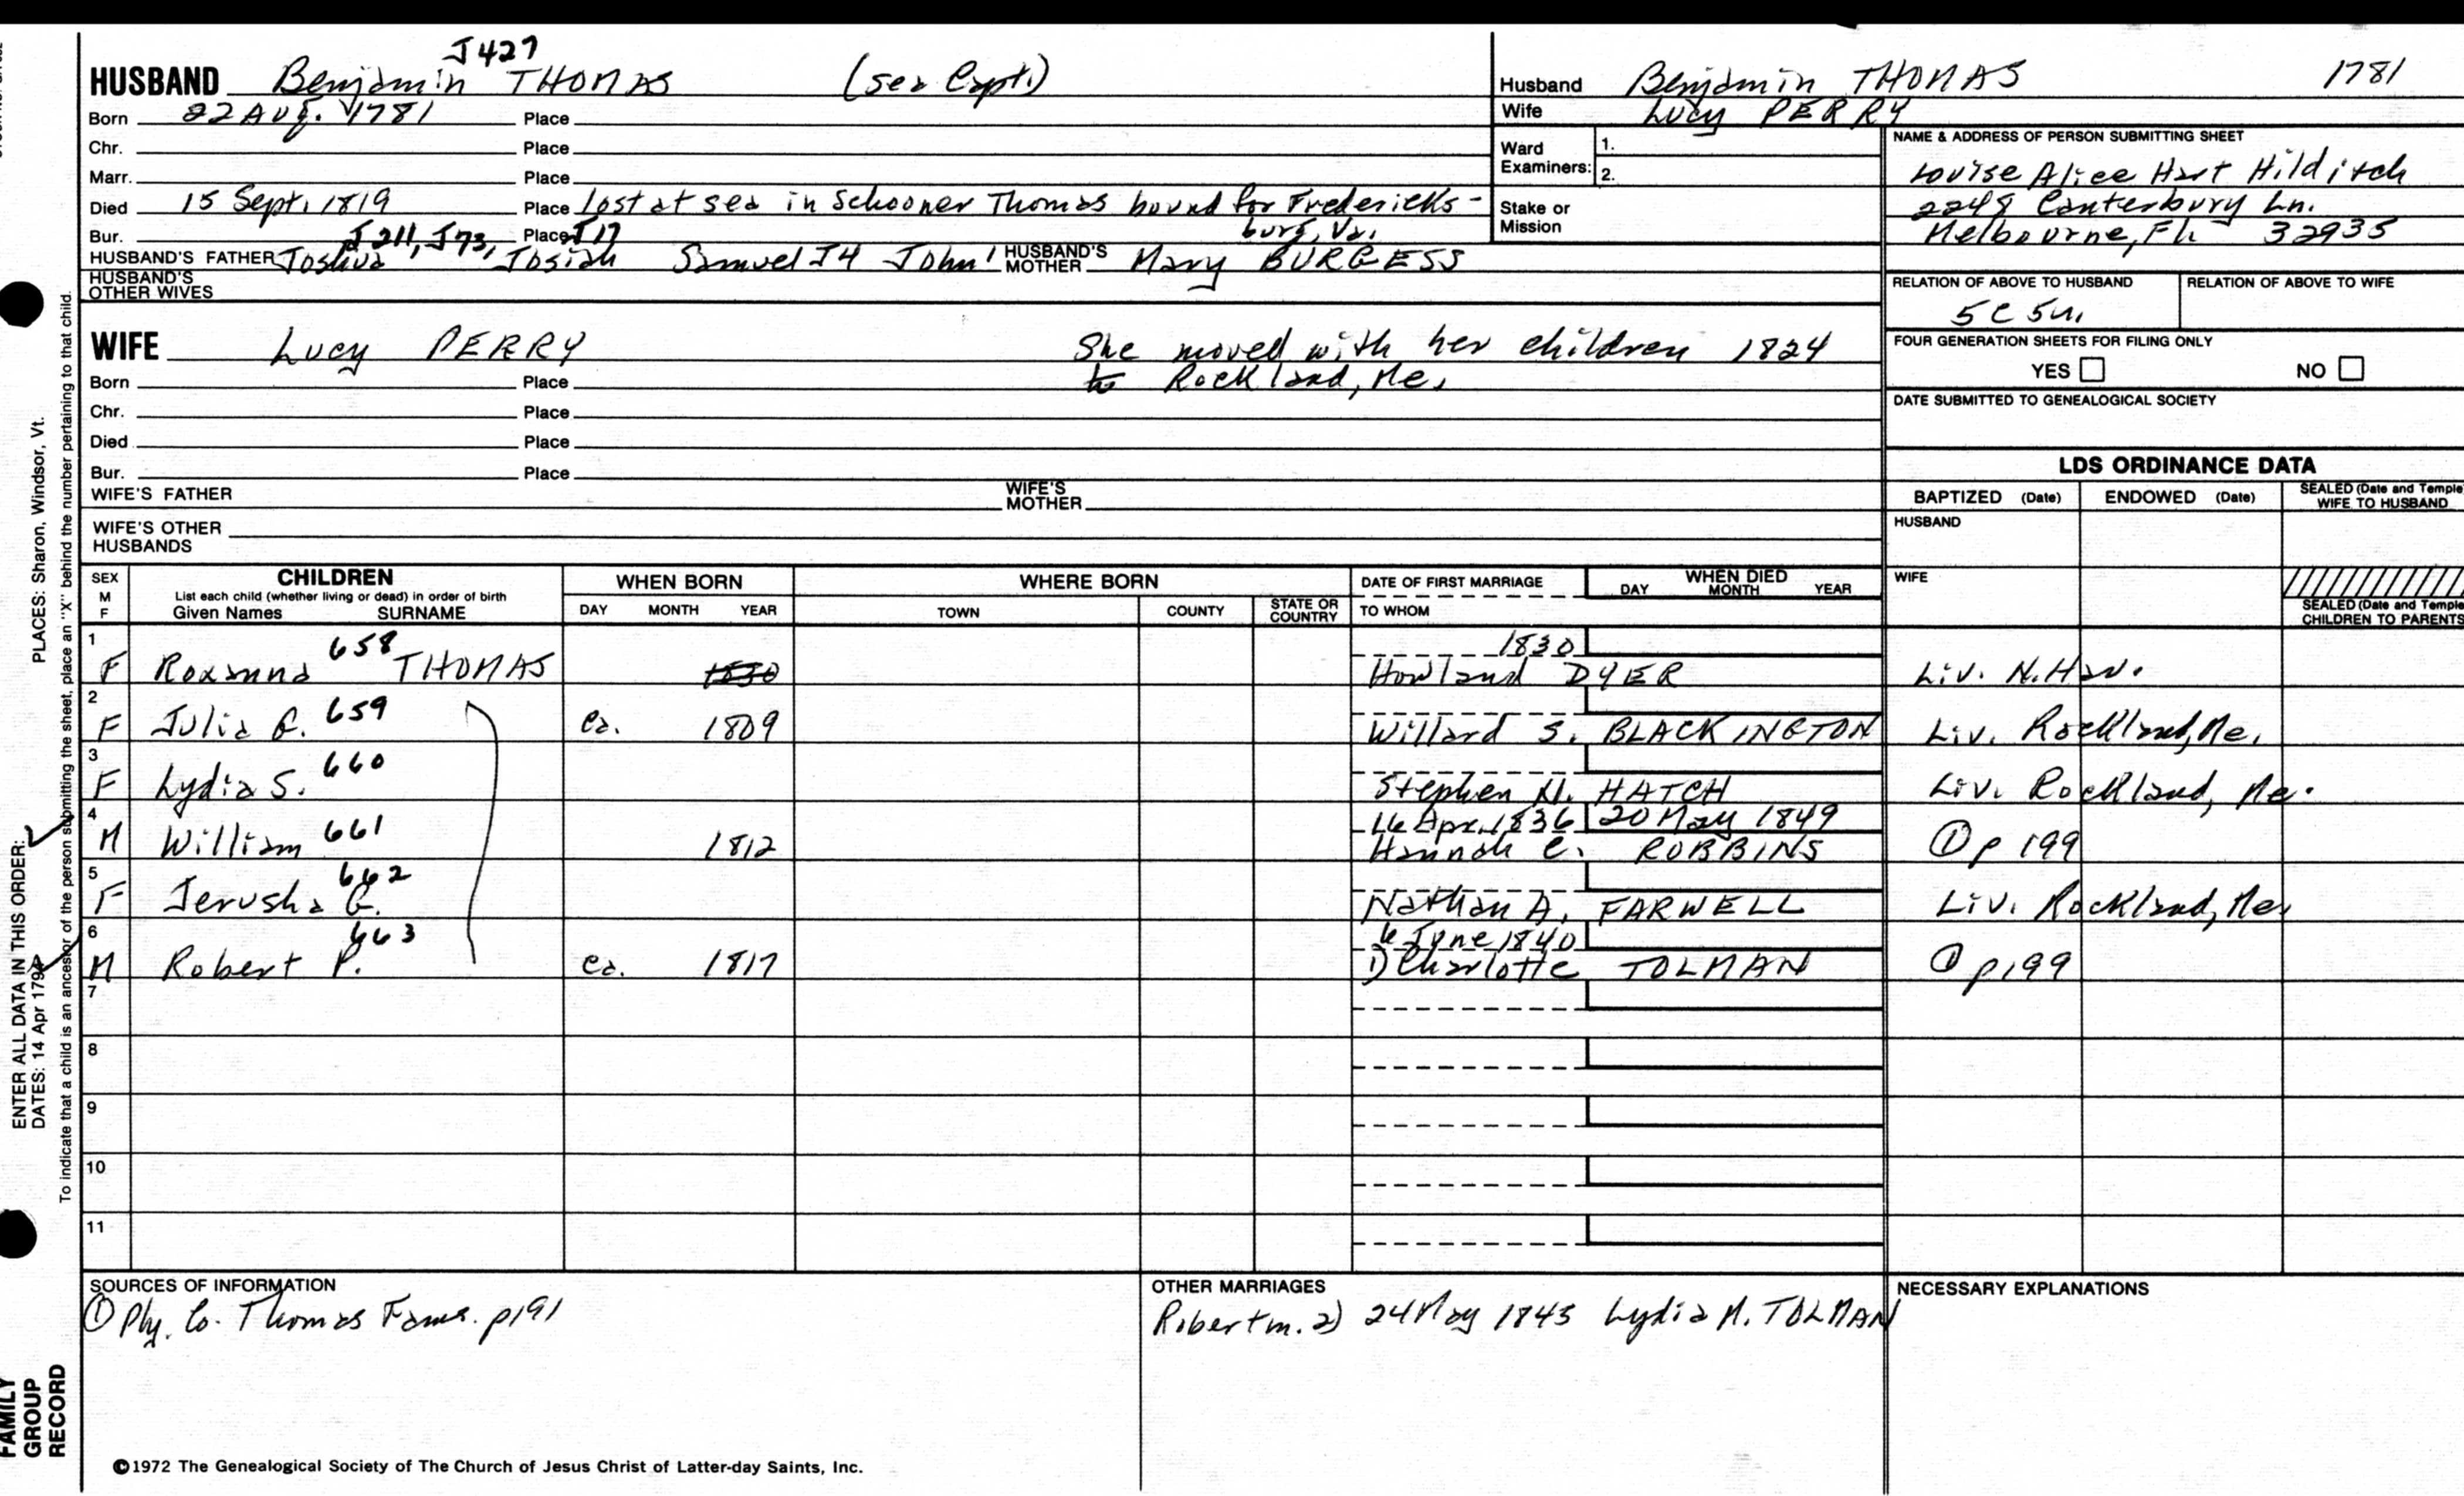 J427
HUSBAND Benjamin THOMAS (sea Capt.)
Born 22 Aug. 1781 Place
Chr. Place
Marr. Place
Died 15 Sept. 1819 Place lost at sea in Schooner Thomas bound for Fredericks-
Bur. Place burg, Va.
J211, J73, J17
HUSBAND'S FATHER Joshua, Josiah Samuel J4 John' HUSBAND'S MOTHER Mary BURGESS
HUSBAND'S OTHER WIVES
WIFE Lucy PERRY She moved with her children 1824
to Rockland, Me.
Born Place
Chr. Place
Died Place
Bur. Place
WIFE'S FATHER WIFE'S MOTHER
WIFE'S OTHER HUSBANDS
Husband Benjamin THOMAS 1781
Wife Lucy PERRY
Ward Examiners: 1.
2.
Stake or Mission
NAME & ADDRESS OF PERSON SUBMITTING SHEET
Louise Alice Hart Hilditch
2248 Canterbury Ln.
Melbourne, Fl 32935
RELATION OF ABOVE TO HUSBAND RELATION OF ABOVE TO WIFE
5C 5
FOUR GENERATION SHEETS FOR FILING ONLY
YES NO
DATE SUBMITTED TO GENEALOGICAL SOCIETY
LDS ORDINANCE DATA
BAPTIZED (Date) ENDOWED (Date) SEALED (Date and Temple) WIFE TO HUSBAND
HUSBAND
WIFE
SEALED (Date and Temple) CHILDREN TO PARENTS
SEX M F CHILDREN WHEN BORN WHERE BORN DATE OF FIRST MARRIAGE WHEN DIED
List each child (whether living or dead) in order of birth
Given Names SURNAME DAY MONTH YEAR TOWN COUNTY STATE OR COUNTRY TO WHOM DAY MONTH YEAR
1 658 1830
F Roxanna THOMAS 1830 Howland DYER Liv. N. Hav.
2 659
F Julia G. ca. 1809 Willard S. BLACKINGTON Liv. Rockland, Me.
3 660
F Lydia S. Stephen N. HATCH Liv. Rockland, Me.
4 661 16 Apr. 1836 20 May 1849
M William 1812 Hannah C. ROBBINS ① p 199
5 662
F Jerusha G. Nathan A. FARWELL Liv. Rockland, Me.
6 663 6 June 1840
M Robert P. ca. 1817 1) Charlotte TOLMAN ① p199
7
8
9
10
11
SOURCES OF INFORMATION
① Ply. Co. Thomas Fams. p191
OTHER MARRIAGES
Robert m. 2) 24 May 1845 Lydia M. TOLMAN
NECESSARY EXPLANATIONS
©1972 The Genealogical Society of The Church of Jesus Christ of Latter-day Saints, Inc.
FAMILY GROUP RECORD
ENTER ALL DATA IN THIS ORDER:
DATES: 14 Apr 1794
PLACES: Sharon, Windsor, Vt.
To indicate that a child is an ancestor of the person submitting the sheet, place an "X" behind the number pertaining to that child.